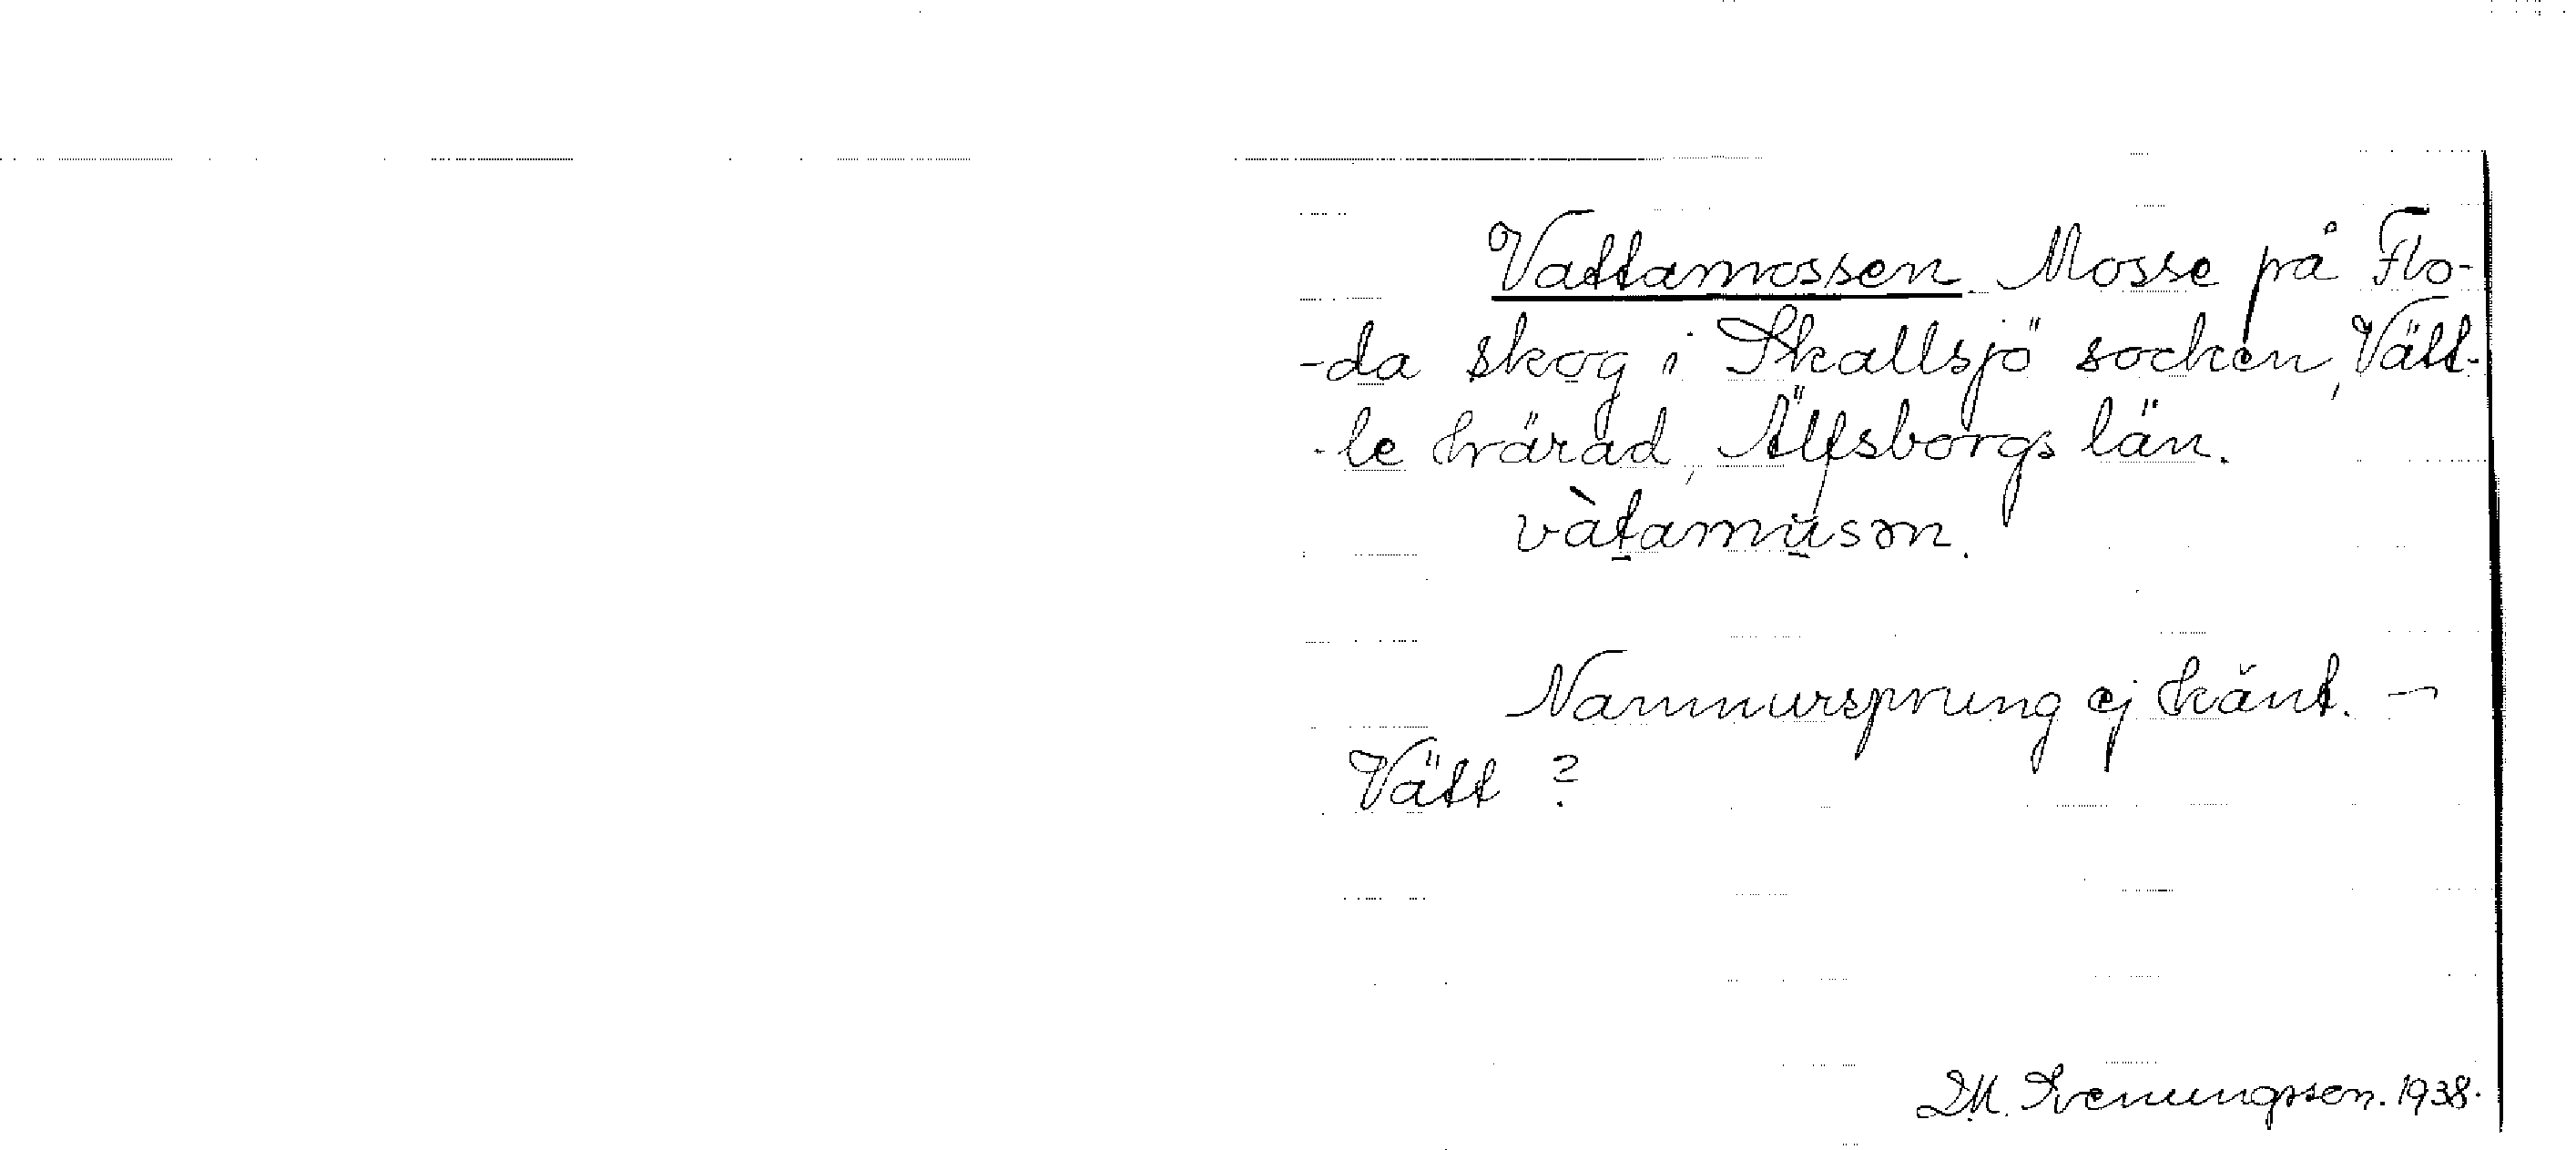 Vattamossen. Mosse på Flo-
-da skog i Skallsjö socken, Vätt-
-le härad, Älfsborgs län.
vàtamusən.
Namnursprung ej känt. —
Vätt ?
D.M. Svenungsson. 1938.